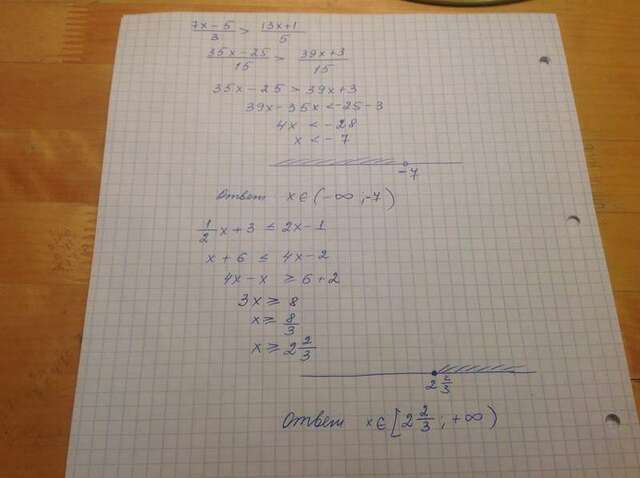 (7x-5)/3 > (13x+1)/5
(35x-25)/15 > (39x+3)/15
35x-25 > 39x+3
39x-35x < -25-3
4x < -28
x < -7
-7
Ответ x∈(-∞;-7)
1/2 x+3 ≤ 2x-1
x+6 ≤ 4x-2
4x-x ≥ 6+2
3x ≥ 8
x ≥ 8/3
x ≥ 2 2/3
2 2/3
Ответ x∈[2 2/3; +∞)